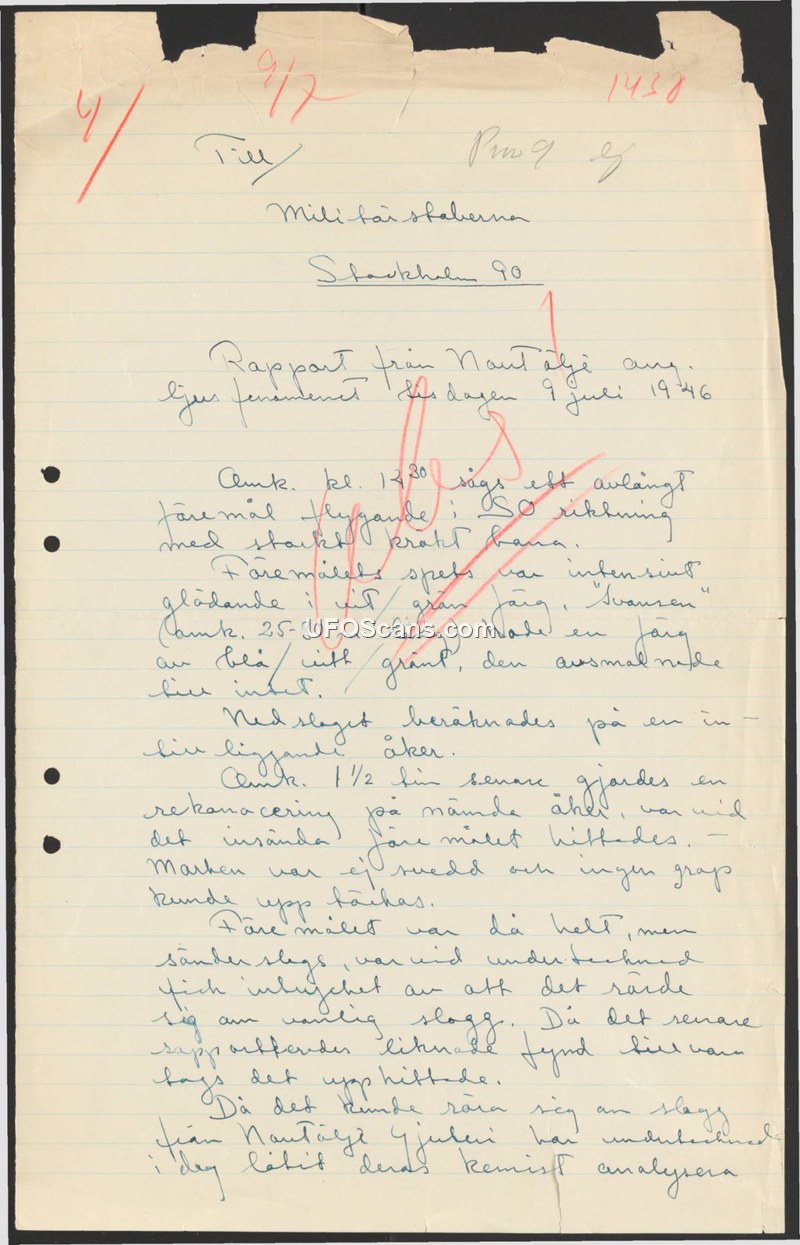 4/
9/7
1430
Till/
Militärstaberna
Stockholm 90
Rapport från Norrtälje ang.
ljusfenomenet tisdagen 9 juli 1946
Omk. kl. 1430 sågs ett avlångt
föremål flygande i SO riktning
med starkt krökt bana.
Föremålets spets var intensivt
glödande i vit grön färg, "Svansen"
(omk. 25- hade en färg
av blå/vitt grönt, den avsmalnade
till intet.
Nedslaget beräknades på en in-
till liggande åker.
Omk. 1 1/2 tim senare gjordes en
rekonocering på nämda åker, varvid
det insända föremålet hittades. –
Marken var ej svedd och ingen grop
kunde upptäckas.
Föremålet var då helt, men
sönderslogs, varvid undertecknad
fick intrycket av att det rörde
sig om vanlig slagg. Då det senare
rapporterades liknade fynd tillvara
togs det upphittade.
Då det kunde röra sig om slagg
från Norrtälje Gjuteri har undertecknad
i dag låtit deras kemist analysera
UFOScans.com